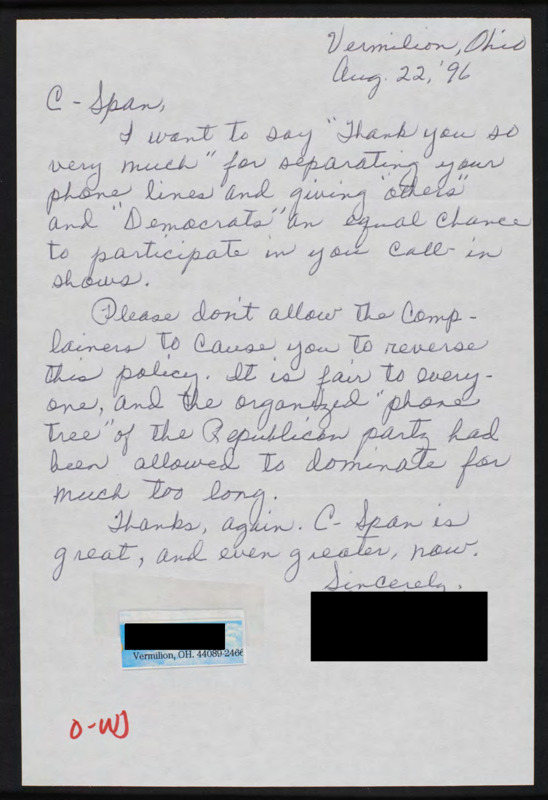 Vermilion, Ohio
Aug. 22, '96
C - Span,
I want to say "Thank you so
very much" for separating your
phone lines and giving "others"
and "Democrats" an equal chance
to participate in you call-in
shows.
Please don't allow the Comp-
lainers to cause you to reverse
this policy. It is fair to every-
one, and the organized "phone
tree" of the Republican party had
been allowed to dominate for
much too long.
Thanks, again. C-Span is
great, and even greater, now.
Sincerely,
Vermilion, OH. 44089-2466
O-WJ